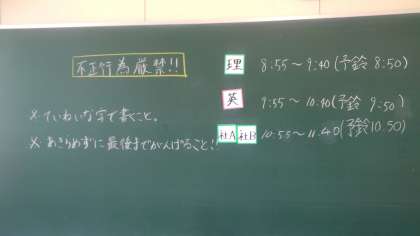 不正行為厳禁!!
理 8:55～9:40(予鈴 8:50)
英 9:55～10:40(予鈴 9:50)
※ていねいな字で書くこと。
※あきらめずに最後までがんばること!
社A 社B 10:55～11:40(予鈴10:50)